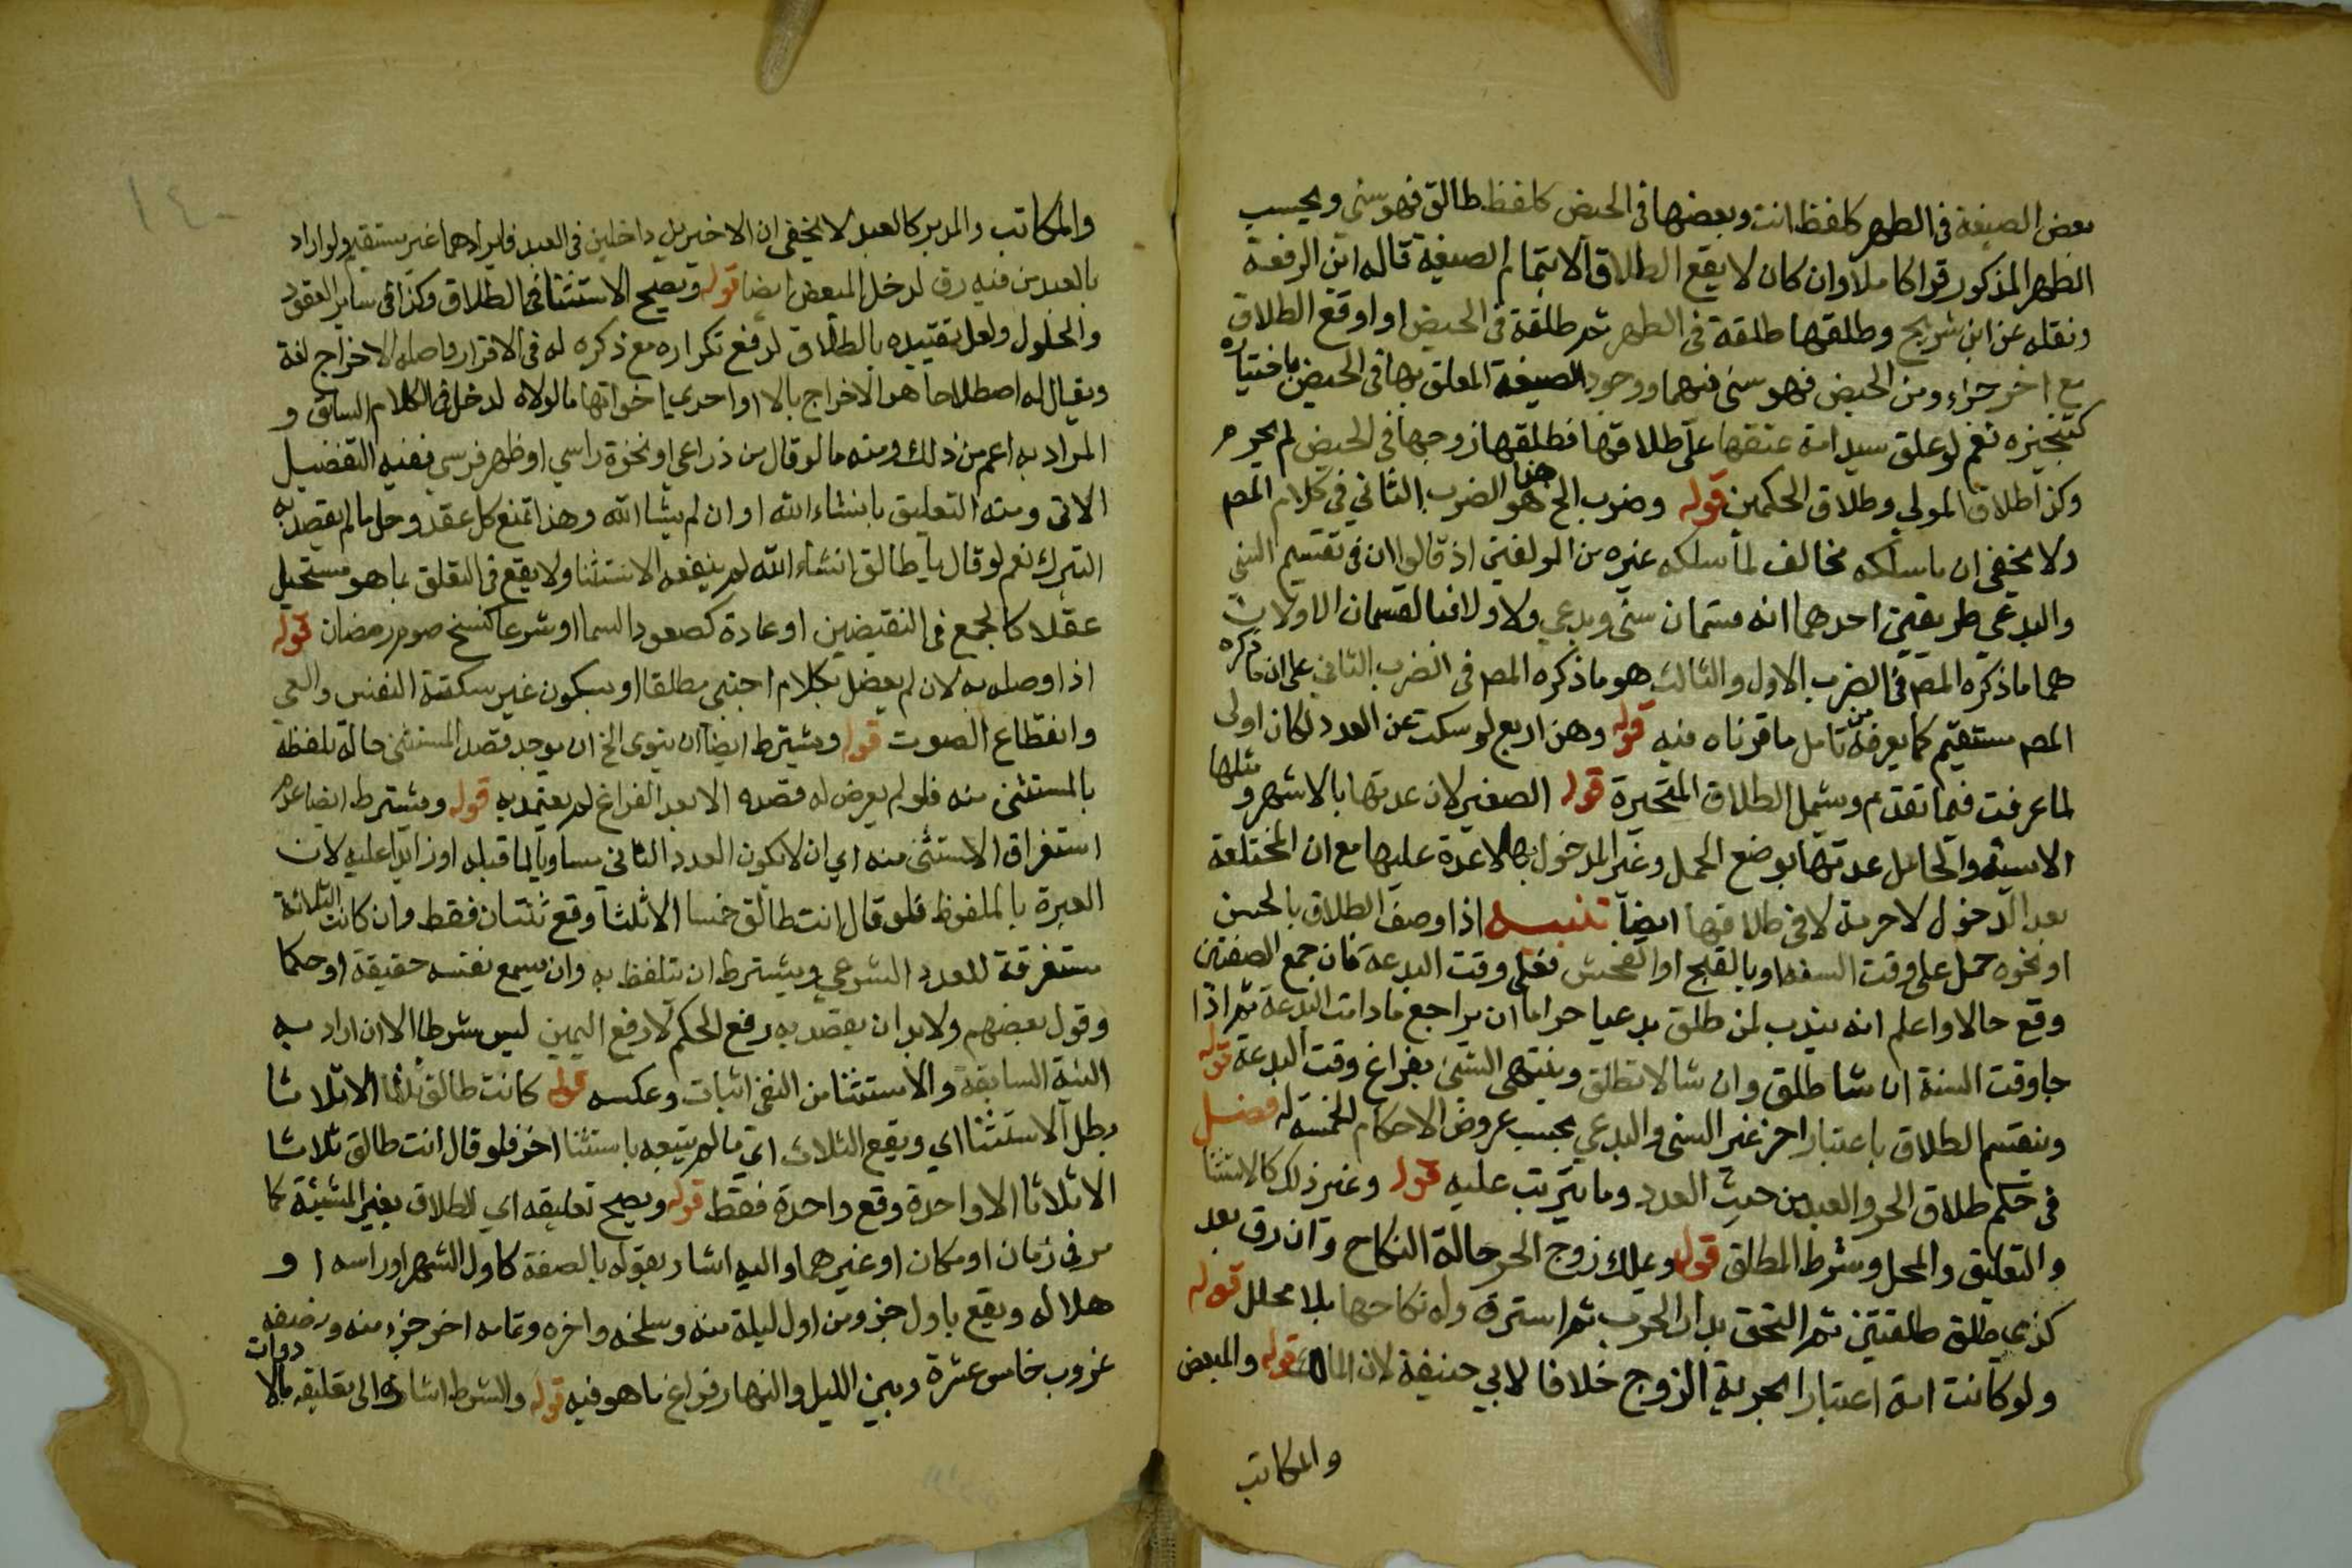 بعض الصيغة في الطهر كلفظ انت وبعضها في الحيض كلفظ طالق فهو سني ويحسب
الطهر المذكور قرا كاملا وان كان لا يقع الطلاق الا بتمام الصيغة قاله ابن الرفعة
ونقله عن ابن شريح وطلقها طلقة في الطهر ثم طلقة في الحيض او اوقع الطلاق
مع اخر جزء ومن الحيض فهو سني فيهما ووجود الصيغة المعلق بها في الحيض باختياره
كتنجيزه نعم لو علق سيد امة عتقها على طلاقها فطلقها زوجها في الحيض لم يحرم
وكذا طلاق المولي وطلاق الحكمين قوله وضرب الخ هذا هو الضرب الثاني في كلام المص
ولا يخفى ان ما سلكه مخالف لما سلكه غيره من المولفين اذ قالوا ان في تقسيم السني
والبدعي طريقين احدهما انه قسمان سني وبدعي ولا ولا فالقسمان الاولان
هما ما ذكره المص في الضرب الاول والثالث هو ما ذكره المص في الضرب الثاني على ان ما ذكره
المص مستقيم كما يعرفه من تامل ما قررناه فيه قوله وهن اربع لو سكت عن العدد لكان اولى
لما عرفت فيما تقدم ويشمل الطلاق المتحيرة قوله الصغير لان عدتها بالاشهر ومثلها
الايسة والحامل عدتها بوضع الحمل وغير المدخول بها لا عدة عليها مع ان المختلعة
بعد الدخول لا حرمة لا في طلاقها ايضا تنبيه اذا وصف الطلاق بالحسن
او نحوه حمل على وقت السنة او بالقبح او الفحش فعلى وقت البدعة فان جمع الصفتين
وقع حالا واعلم انه يندب لمن طلق بدعيا حراما ان يراجع ما دامت البدعة ثم اذا
جا وقت السنة ان شا طلق وان شا لا تطلق وينتهي السني بفراغ وقت البدعة قوله
وينقسم الطلاق باعتبار اخر غير السني والبدعي بحسب عروض الاحكام الخمسة له فصل
في حكم طلاق الحر والعبد من حيث العدد وما يترتب عليه قوله وغير ذلك كالاستثنا
والتعليق والمحل وشرط المطلق قوله ويملك زوج الحر حالة النكاح وان رق بعد
كذمي طلق طلقتين ثم التحق بدار الحرب ثم استرق وله نكاحها بلا محلل قوله
ولو كانت امة اعتبارا بحرية الزوج خلافا لابي حنيفة لان المالك قوله والمبعض
والمكاتب
والمكاتب والمدبر كالعبد لا يخفى ان الاخيرين داخلين في العبد فايرادهما غير مستقيم ولو اراد
بالعبد من فيه رق لدخل المبعض ايضا قوله ويصح الاستثنا في الطلاق وكذا في ساير العقود
والحلول ولعل تقييده بالطلاق لدفع تكراره مع ذكره له في الاقرار واصله الاخراج لغة
ويقال له اصطلاحا هو الاخراج بالا او احدى اخواتها ما لولاه لدخل في الكلام السابق و
المراد به اعم من ذلك ومنه ما لو قال من ذراعي او نخوة راسي او ظهر فرسي ففيه التفضيل
الاتي ومنه التعليق بانشاء الله او ان لم يشا الله وهذا تمنع كل عقد وحل ما لم يقصد به
التبرك نعم لو قال يا طالق انشاء الله لم ينفعه الاستثنا ولا يقع في التعلق بما هو مستحيل
عقلا كالجمع في النقيضين او عادة كصعود السما او شرعا كنسخ صوم رمضان قوله
اذا وصله به لان لم يفصل بكلام اجنبي مطلقا او بسكون غير سكتة النفس والعي
وانقطاع الصوت قوله ويشترط ايضا ان ينوى الخ ان يوجد قصد المستثنى حالة تلفظه
بالمستثنى منه فلو لم يعرض له قصده الا بعد الفراغ لم يعتد به قوله ويشترط ايضا عدم
استغراق الاستثنى منه اي ان لا يكون العدد الثاني مساويا لما قبله او زايدا عليه لان
العبرة بالملفوظ فلو قال انت طالق خمسا الا ثلثا وقع ثنتان فقط وان كانت الثلاثة
مستغرقة للعدد الشرعي ويشترط ان يتلفظ به وان يسمع نفسه حقيقة او حكما
وقول بعضهم ولا بد ان يقصد به رفع الحكم لا رفع اليمين ليس شرطا الا ان اراد به
النية السابقة والاستثنا من النفي اثبات وعكسه قوله كانت طالق ثلثا الا ثلاثا
بطل الاستثنا اي ويقع الثلاث اي ما لم يتبعه باستثنا اخر فلو قال انت طالق ثلاثا
الا ثلاثا الا واحدة وقع واحدة فقط قوله ويصح تعليقه اي الطلاق بغير المشيئة كما
مر في زمان او مكان او غيرهما واليه اشار بقوله بالصفة كاول الشهر او راسه او
هلاله ويقع باول جزو من اول ليلة منه وسلخه واخره وتمامه اخر جزء منه ونصفه
غروب خامس عشرة وبين الليل والنهار فراغ ما هو فيه قوله والشرط اشارة الى تعليقه بالادوات
١٤٠